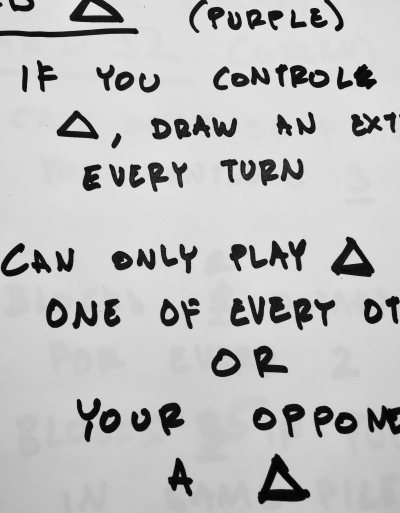 △ (PURPLE)
IF YOU CONTROL
△, DRAW AN
EVERY TURN
CAN ONLY PLAY △
ONE OF EVERY
OR
YOUR
A △